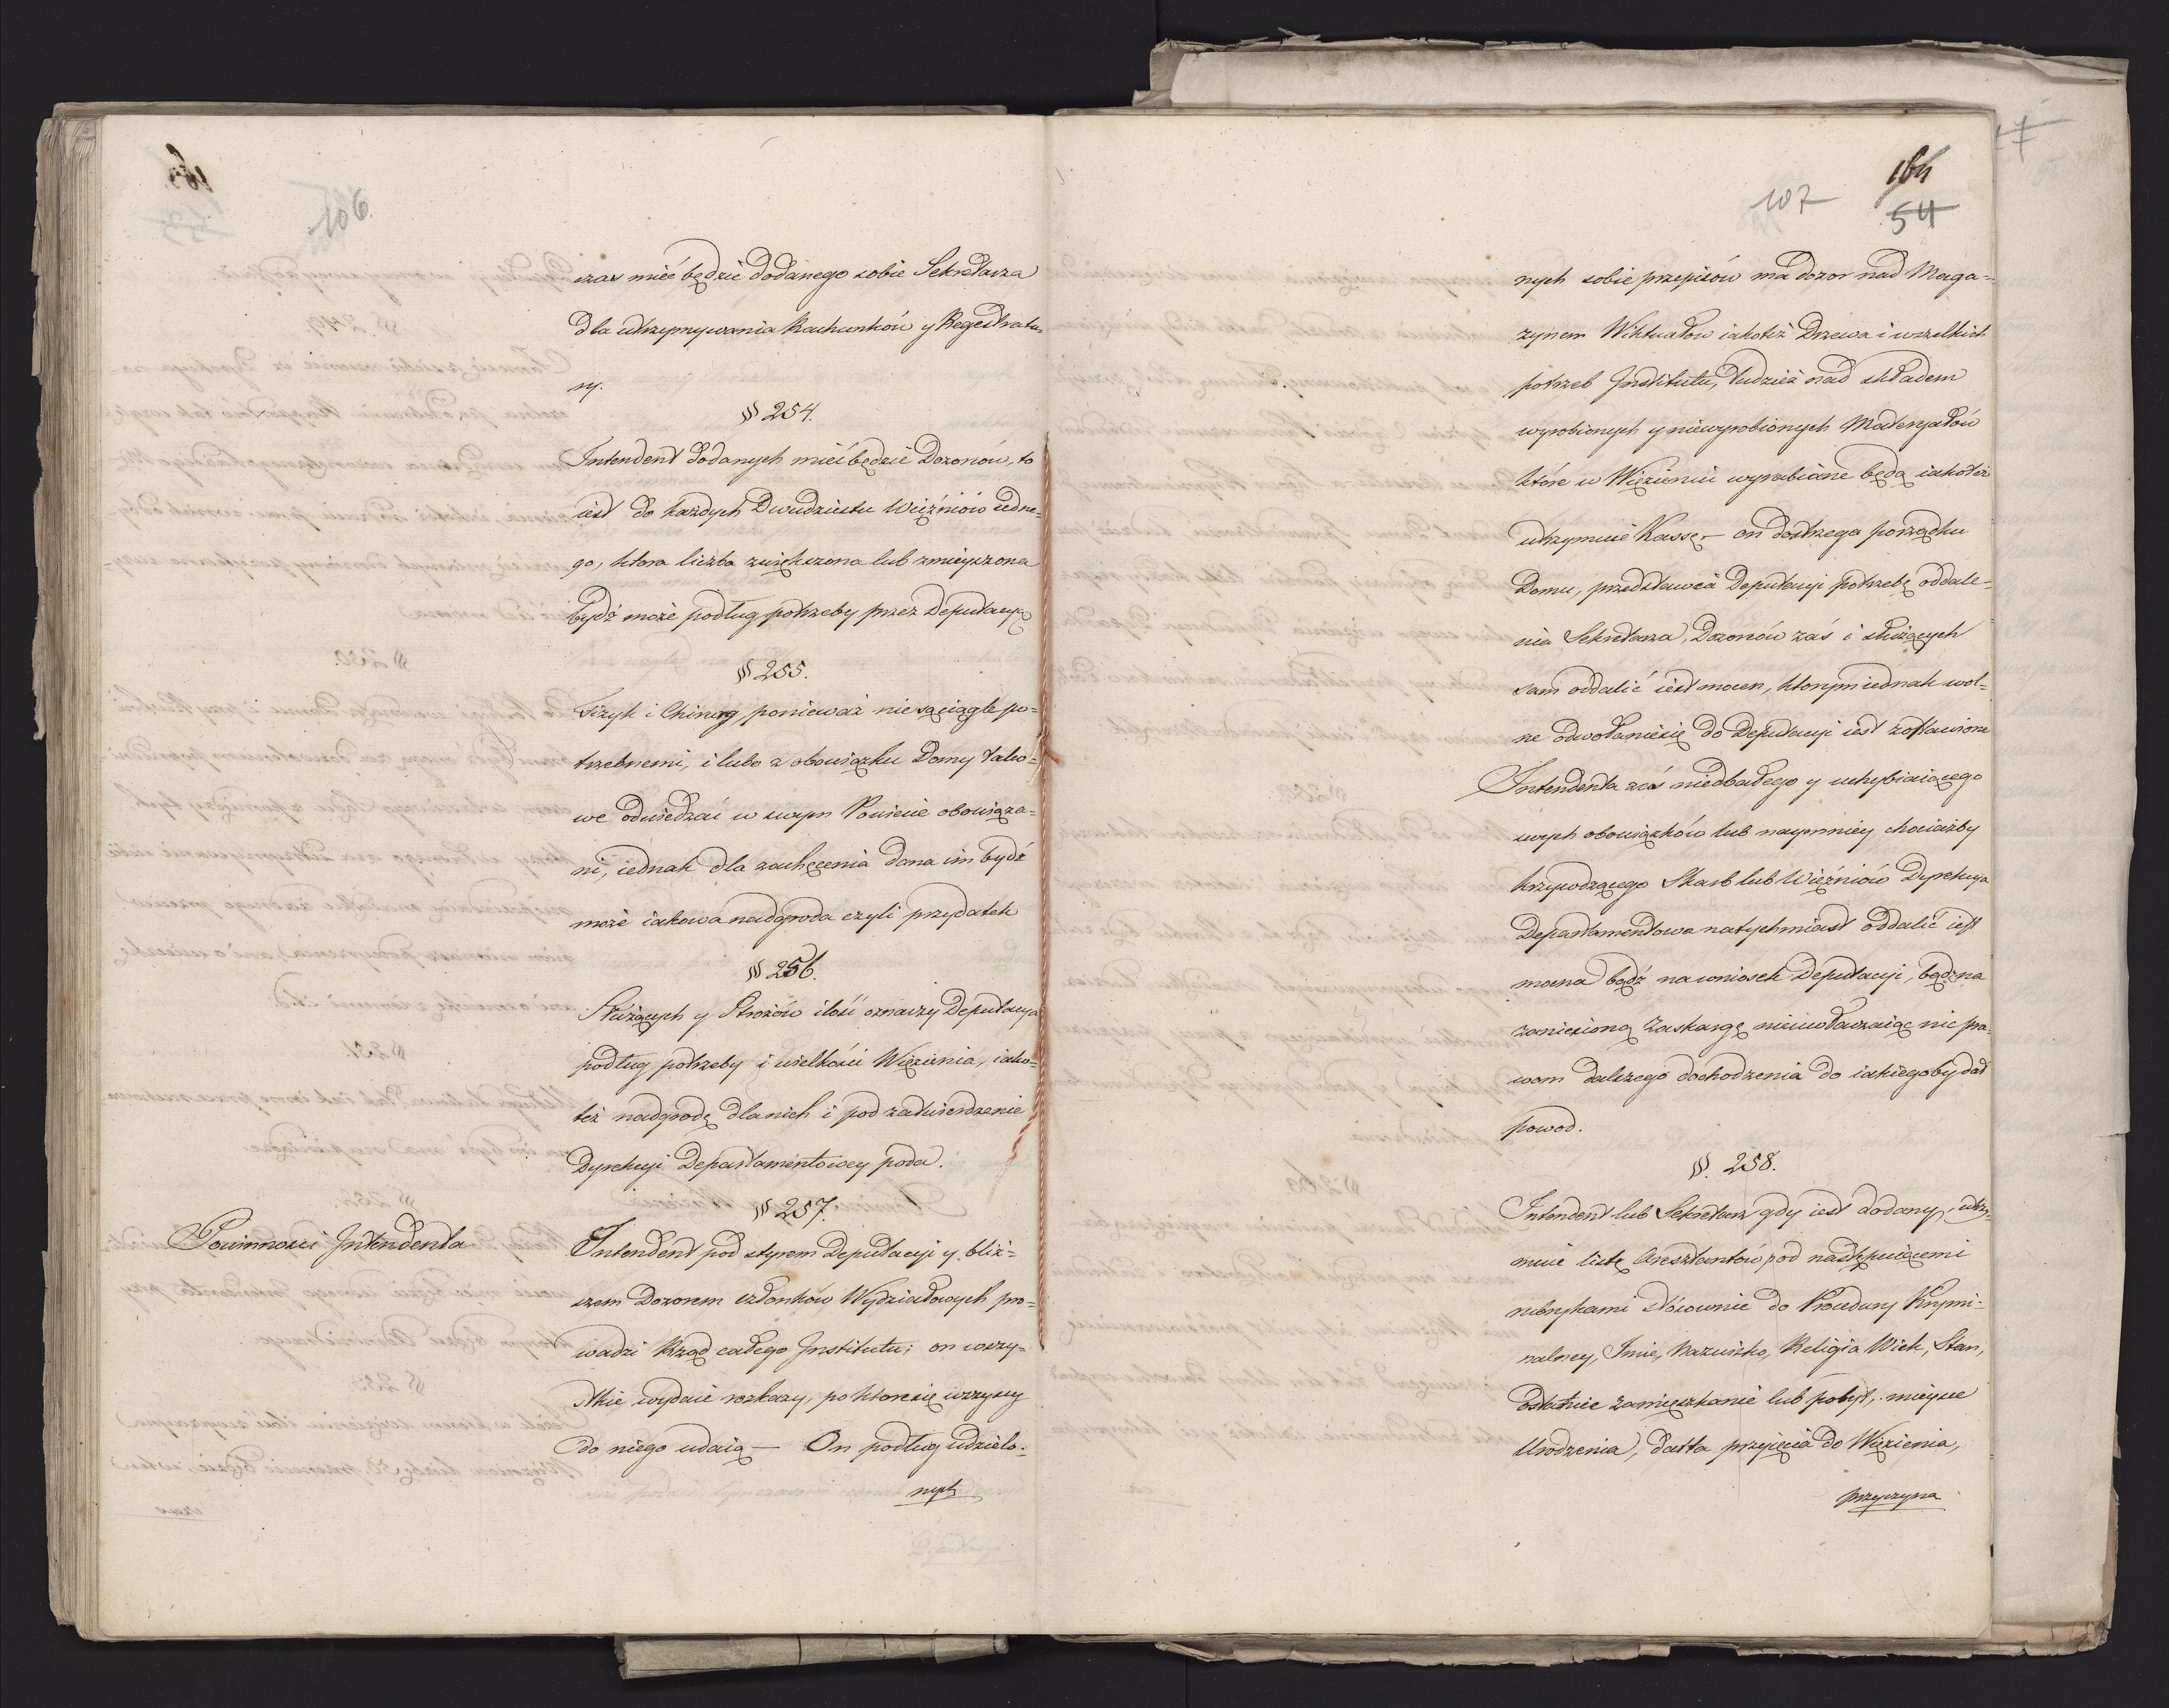 106.
czas mieć będzie dodanego sobie Sekretarza
dla utrzymywania Rachunków y Regestratu=
ry.
§ 254.
Intendent dodanych mieć będzie Dozorców, to
iest do każdych Dwudziestu Więźniów iedne=
go, która liczba zwiększona lub zmieyszona
bydź może podług potrzeby przez Deputacyą
§ 255.
Fizyk i Chirurg ponieważ nie są ciągle po=
trzebnemi, i lubo z obowiązku Domy takо=
we odwiedzać w swym Powiecie obowiąza=
ni, iednak dla zachęcenia dana im bydź
może iakowa nadgroda czyli przydatek
§ 256.
Służących y Stróżów ilość oznaczy Deputacya
podług potrzeby i wielkości Więzienia, iako=
też nadgrodę dla nich i pod zatwierdzenie
Dyrekcyi Departamentowey poda.
§ 257.
Powinności Intendenta
Intendent pod styrem Deputacyi y bliż=
szem Dozorem członków Wydziałowych pro=
wadzi Rząd całego Institutu; on wszy=
stkie wydaie rozkazy, po które się wszyscy
do niego udaią — On podług udzielo=
nych
107
164
54
nych sobie przepisów ma dozor nad Maga=
zynem Wiktuałow iakoteż Drzewa i wszelkich
potrzeb Institutu, tudzież nad składem
wyrobionych y niewyrobionych Materyałów
które w Więzieniu wyrabiane będą iakoteż
utrzymuie Kassę — on dostrzega porządku
Domu, przedstawia Deputacyi potrzebę oddale=
nia Sekretarza, Dozorców zaś i służących
sam oddalić iest mocen, którym iednak wol=
ne odwołanie się do Deputacyi iest zostawione
Intendenta zaś niedbałego y uchybiaiącego
swych obowiązków lub naymniey chociażby
krzywdzącego Skarb lub Więźniów Dyrekcya
Departamentowa natychmiast oddalić iest
mocna bądź na wniosek Deputacyi, bądź na
zaniesioną zaskargę nieuwłaczaiąc nic pra=
wom dalszego dochodzenia do iakiegoby dał
powod.
§. 258.
Intendent lub Sekretarz gdy iest dodany, utrzy=
muie listę Aresztantów pod następuiącemi
rubrykami stosownie do Procedury Krymi=
nalney, Imie, Nazwisko, Religia Wiek, Stan,
ostatnie zamięszkanie lub pobyt, mieysce
Urodzenia, datta przyięcia do Więzienia,
przyczyna